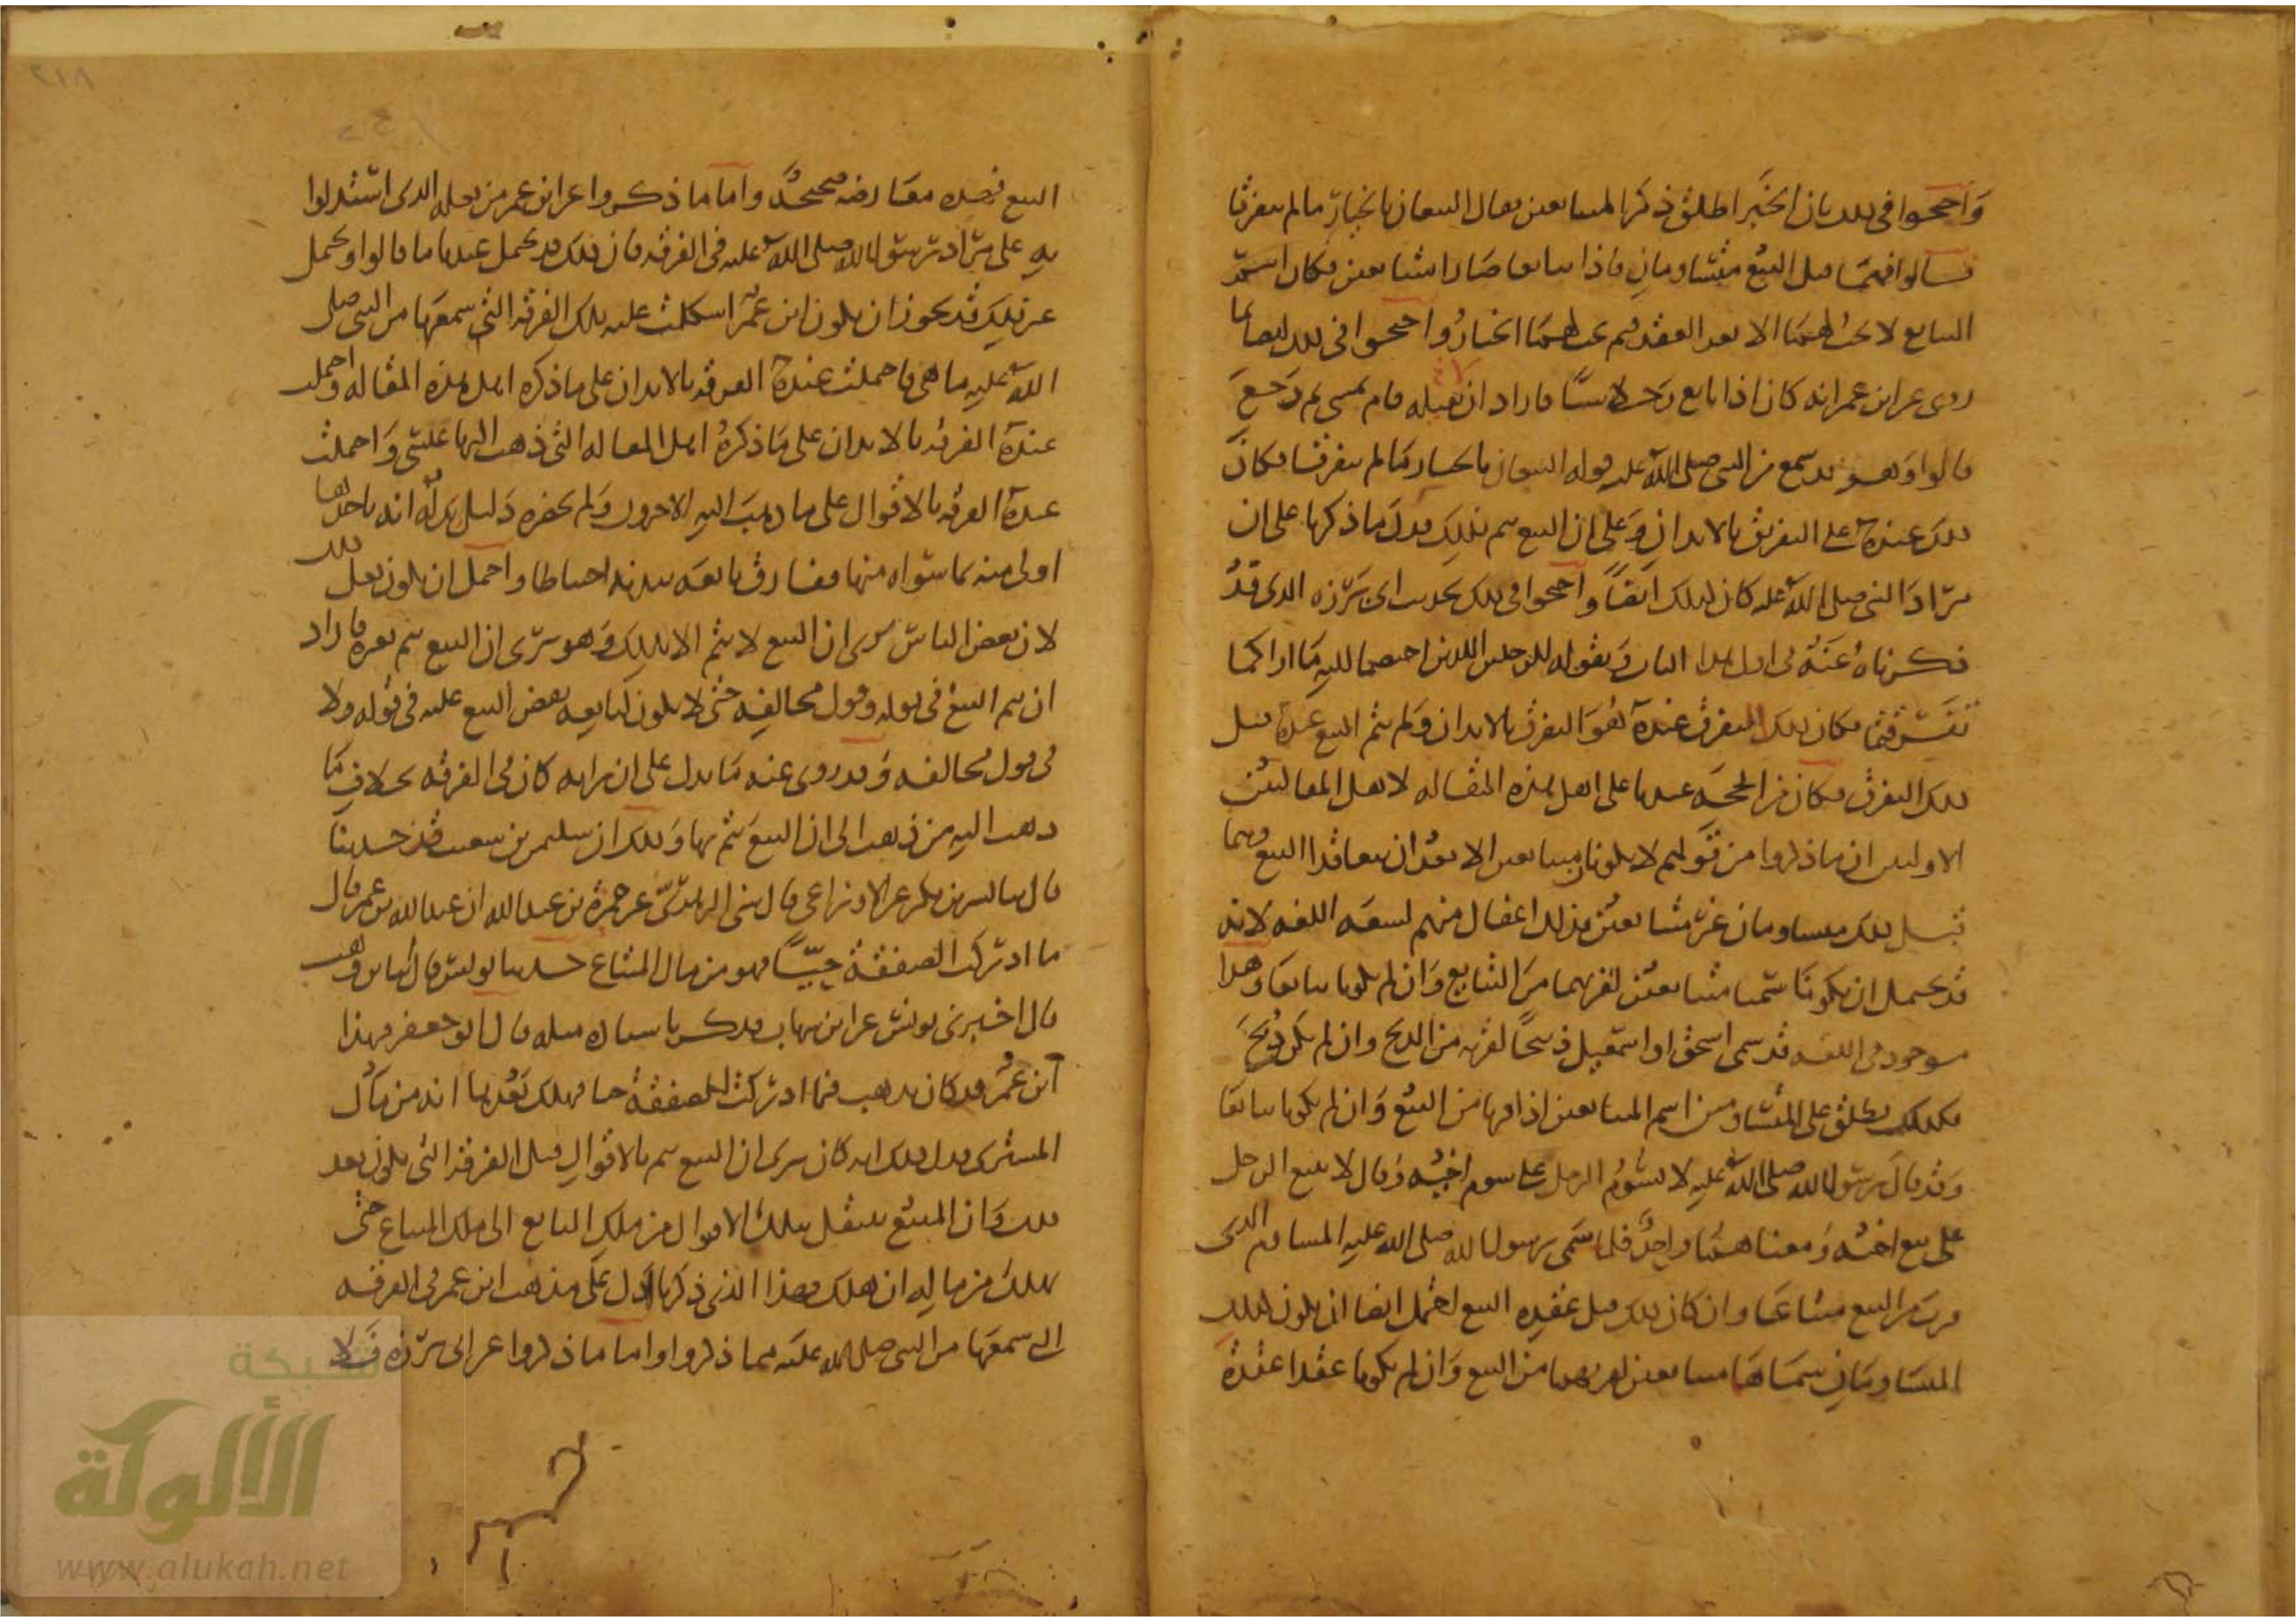 واحتجوا في ذلك بان الخبر اطلق ذكر المتبايعين فقال البيعان بالخيار ما لم يتفرقا
قالوا فهما قبل البيع متساومان فاذا تبايعا صارا متبايعين فكان اسم
البايع لا يجب لهما الا بعد العقد فلم يجب لهما الخيار واحتجوا في ذلك ايضا بما
روي عن ابن عمر انه كان اذا بايع رجلا شيا فاراد ان لا يقيله قام يمشي ثم رجع
قالوا وهو قد سمع من النبي صلى الله عليه قوله البيعان بالخيار ما لم يتفرقا فكان
ذلك عنده على التفرق بالابدان وعلى ان البيع يتم بذلك فدل ما ذكرنا على ان
مراد النبي صلى الله عليه كان كذلك ايضا واحتجوا في ذلك بحديث ابي برزة الذي قد
ذكرناه عنه في اول هذا الباب وبقوله للرجلين اللذين اختصما اليه ما اراكما
تفرقتما فكان ذلك التفرق عنده هو التفرق بالابدان ولم يتم البيع عنده قبل
ذلك التفرق فكان من الحجة عندنا على اهل هذه المقالة لاهل المقالتين
الاوليين ان ما ذكروا من قولهم لا يكونان متبايعين الا بعد ان يتعاقدا البيع وهما
قبل ذلك متساومان غير متبايعين فذلك اغفال منهم لسعة اللغة لانه
قد يحتمل ان يكونا سميا متبايعين لقربهما من التبايع وان لم يكونا تبايعا وهذا
موجود في اللغة قد سمى اسحق او اسمعيل ذبيحا لقربه من الذبح وان لم يكن ذبح
فكذلك يطلق على المتساومين اسم المتبايعين اذا قربا من البيع وان لم يكونا تبايعا
وقد قال رسول الله صلى الله عليه لا يسوم الرجل على سوم اخيه وقال لا يبيع الرجل
على بيع اخيه ومعناهما واحد فلما سمى رسول الله صلى الله عليه المساوم الذي
قرب من البيع متبايعا وان كان ذلك قبل عقده البيع احتمل ايضا ان يكون كذلك
المتساومان سماهما متبايعين لقربهما من البيع وان لم يكونا عقدا عقدة
البيع فهذه معارضة صحيحة واما ما ذكروا عن ابن عمر من فعله الذي استدلوا
به على مراد رسول الله صلى الله عليه في الفرقة فان ذلك قد يحتمل عندنا ما قالوا ويحتمل
غير ذلك قد يجوز ان يكون ابن عمر اشكلت عليه تلك الفرقة التي سمعها من النبي صلى
الله عليه ما هي فاحتملت عنده الفرقة بالابدان على ما ذكره اهل هذه المقالة واحتملت
عنده الفرقة بالابدان على ما ذكره اهل المقالة التي ذهب اليها عيسى واحتملت
عنده الفرقة بالاقوال على ما ذهب اليه الاخرون ولم يحضره دليل يدله انه باحدها
اولى منه بما سواه منها ففارق بايعه ببدنه احتياطا واحتمل ان يكون فعل ذلك
لان بعض الناس يرى ان البيع لا يتم الا بذلك وهو يرى ان البيع يتم بغيره فاراد
ان يتم البيع في قوله وقول مخالفه حتى لا يكون لبايعه نقض البيع عليه في قوله ولا
في قول مخالفه وقد روي عنه ما يدل على ان رايه كان في الفرقة بخلاف ما
ذهب اليه من ذهب الى ان البيع يتم بها وذلك ان سليمن بن شعيب قد حدثنا
قال ثنا بشر بن بكر عن الاوزاعي قال ثني الزهري عن حمزة بن عبد الله ان عبد الله بن عمر قال
ما ادركت الصفقة حيا فهو من مال المبتاع حدثنا يونس قال ثنا ابن وهب
قال اخبرني يونس عن ابن شهاب فذكر باسناده مثله قال ابو جعفر فهذا
ابن عمر قد كان يذهب فيما ادركت الصفقة حيا فهلك بعدها انه من مال
المشتري فدل ذلك انه كان يرى ان البيع يتم بالاقوال قبل الفرقة التي تكون بعد
ذلك وان المبيع ينتقل بتلك الاقوال من ملك البايع الى ملك المبتاع حتى
يهلك من ماله ان هلك فهذا الذي ذكرنا ادل على مذهب ابن عمر في الفرقة
التي سمعها من النبي صلى الله عليه مما ذكروا واما ما ذكروا عن ابي برزة فلا
شبكة
الألوكة
www.alukah.net